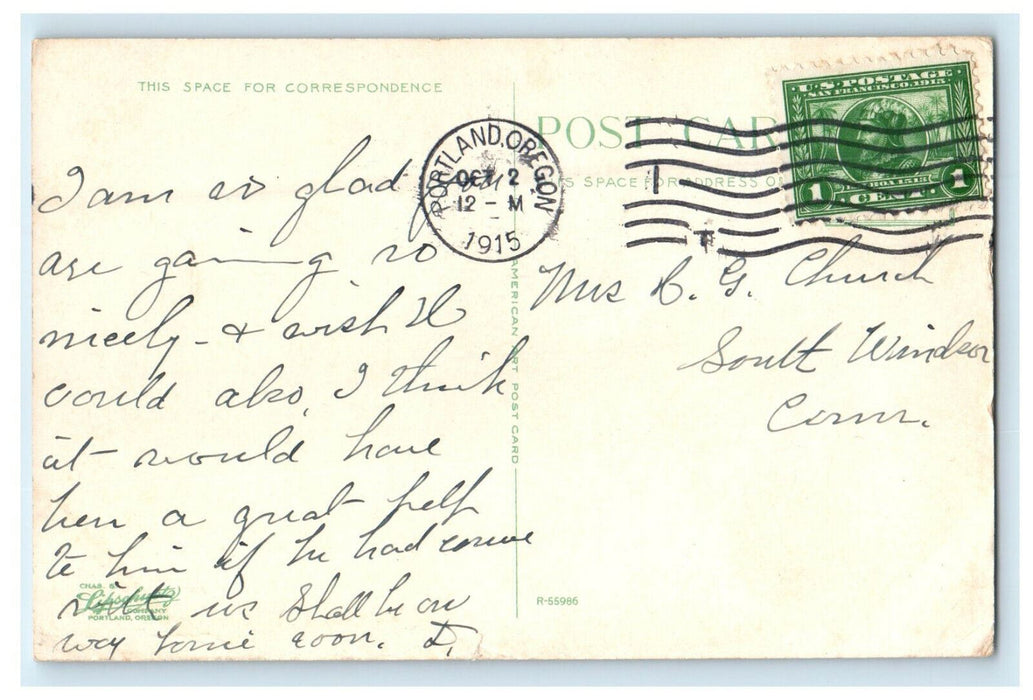 THIS SPACE FOR CORRESPONDENCE
I am so glad
are gaining so
nicely - & wish H
could also, I think
it would have
been a great help
to him if he had come
with us Shall be on
way home soon. D.
CHAS. S.
Lipschuetz
COMPANY
PORTLAND, OREGON
AMERICAN ART POST CARD
PORTLAND, OREGON
OCT 2
12 - M
1915
POST CAR
S SPACE FOR ADDRESS O
U.S. POSTAGE
SAN FRANCISCO, 1915
BALBOA 1513
1 CENT 1
Mrs C. G. Church
South Windsor
Conn.
R-55986